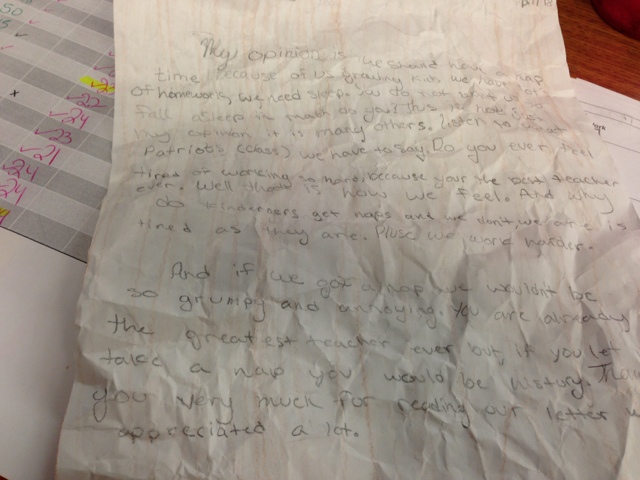 My opinion is we should have a nap
time. Because of us growing kids we have
of homework, we need sleep. You do not want us to
fall asleep in math do you? This is not
my opinion it is many others. Listen to what
Patriots (class) we have to say. Do you ever feel
tired of working so hard, because your the best teacher
ever. Well that is how we feel. And why
do kinderners get naps and we don't we are is
tired as they are. Pluse we work harder.
And if we got a nap we wouldn't be
so grumpy and annoying. You are already
the greatest teacher ever but, if you let
take a nap you would be history.
you very much for reading our letter
appreciated a lot.
50
22
24
23
21
24
24